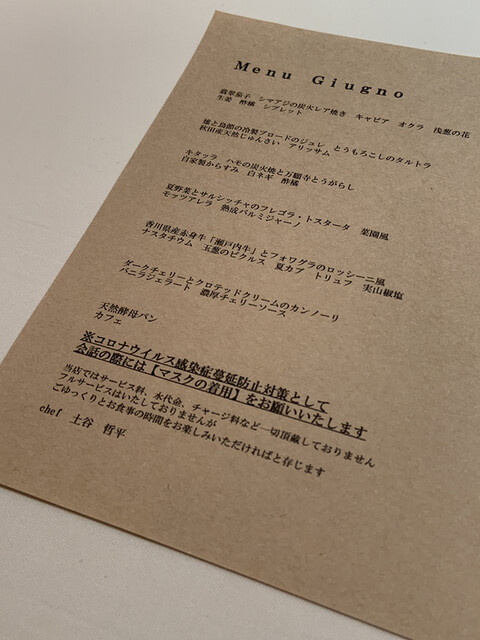 Menu Giugno
翡翠茄子 シマアジの炭火レア焼き キャビア オクラ 浅葱の花
生姜 酢橘 シブレット
雉と烏賊の冷製ブロードのジュレ とうもろこしのタルトラ
秋田産天然じゅんさい アリッサム
キタッラ ハモの炭火焼と万願寺とうがらし
自家製からすみ 白ネギ 酢橘
夏野菜とサルシッチャのフレゴラ・トスタータ 菜園風
モッツアレラ 熟成パルミジャーノ
香川県産赤身牛「瀬戸内牛」とフォワグラのロッシーニ風
ナスタチウム 玉葱のピクルス 夏カブ トリュフ 実山椒塩
ダークチェリーとクロテッドクリームのカンノーリ
バニラジェラート 濃厚チェリーソース
天然酵母パン
カフェ
※コロナウイルス感染症蔓延防止対策として
会話の際には【マスクの着用】をお願いいたします
当店ではサービス料、水代金、チャージ料など一切頂戴しておりません
フルサービスはいたしておりませんが
ごゆっくりとお食事の時間をお楽しみいただければと存じます
chef 土谷 哲平